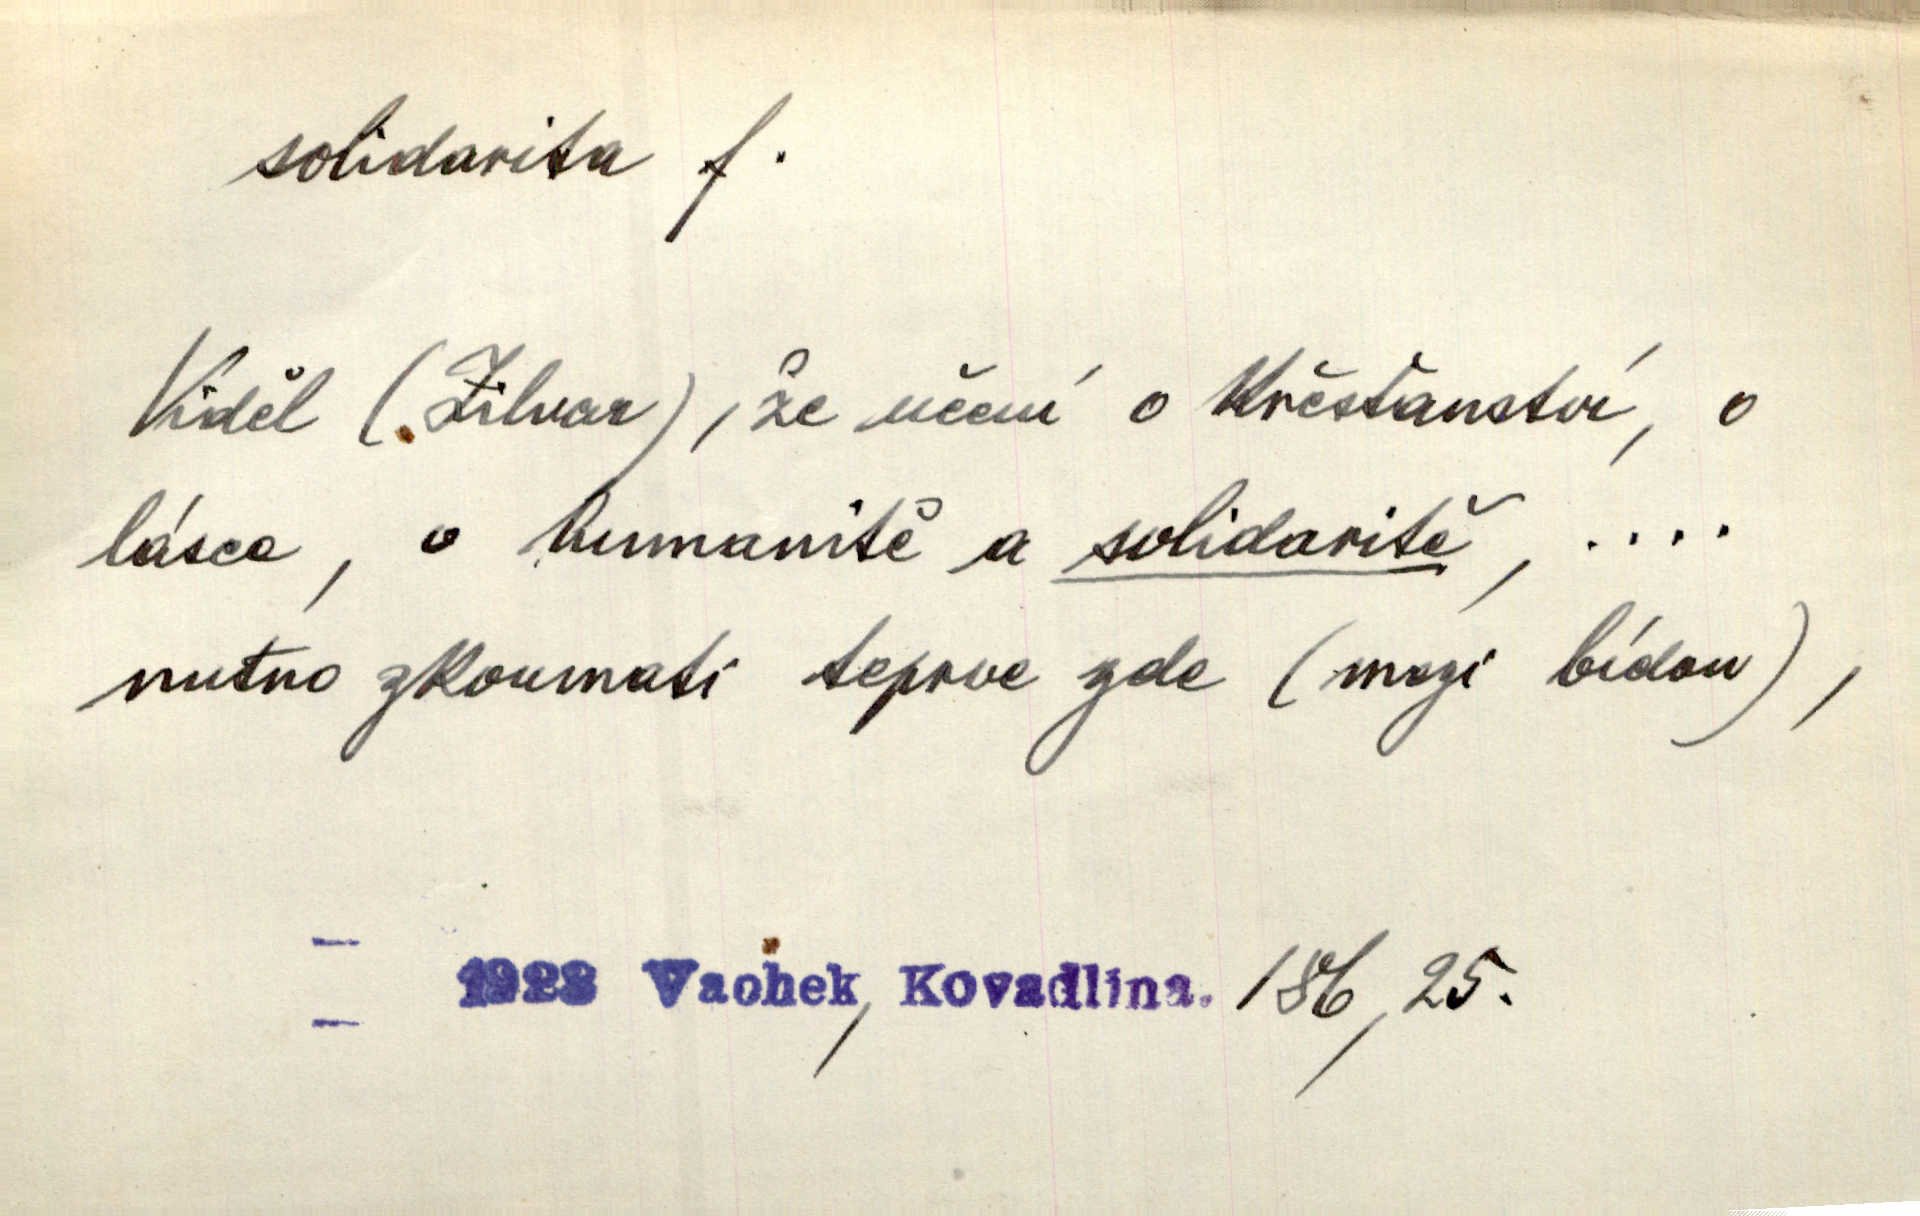 solidarita f.
Viděl (Žilvar), že učení o křesťanství, o
lásce, o humanitě a solidaritě, ....
nutno zkoumati teprve zde (mezi bídou),
1928 Vachek, Kovadlina. 186, 25.